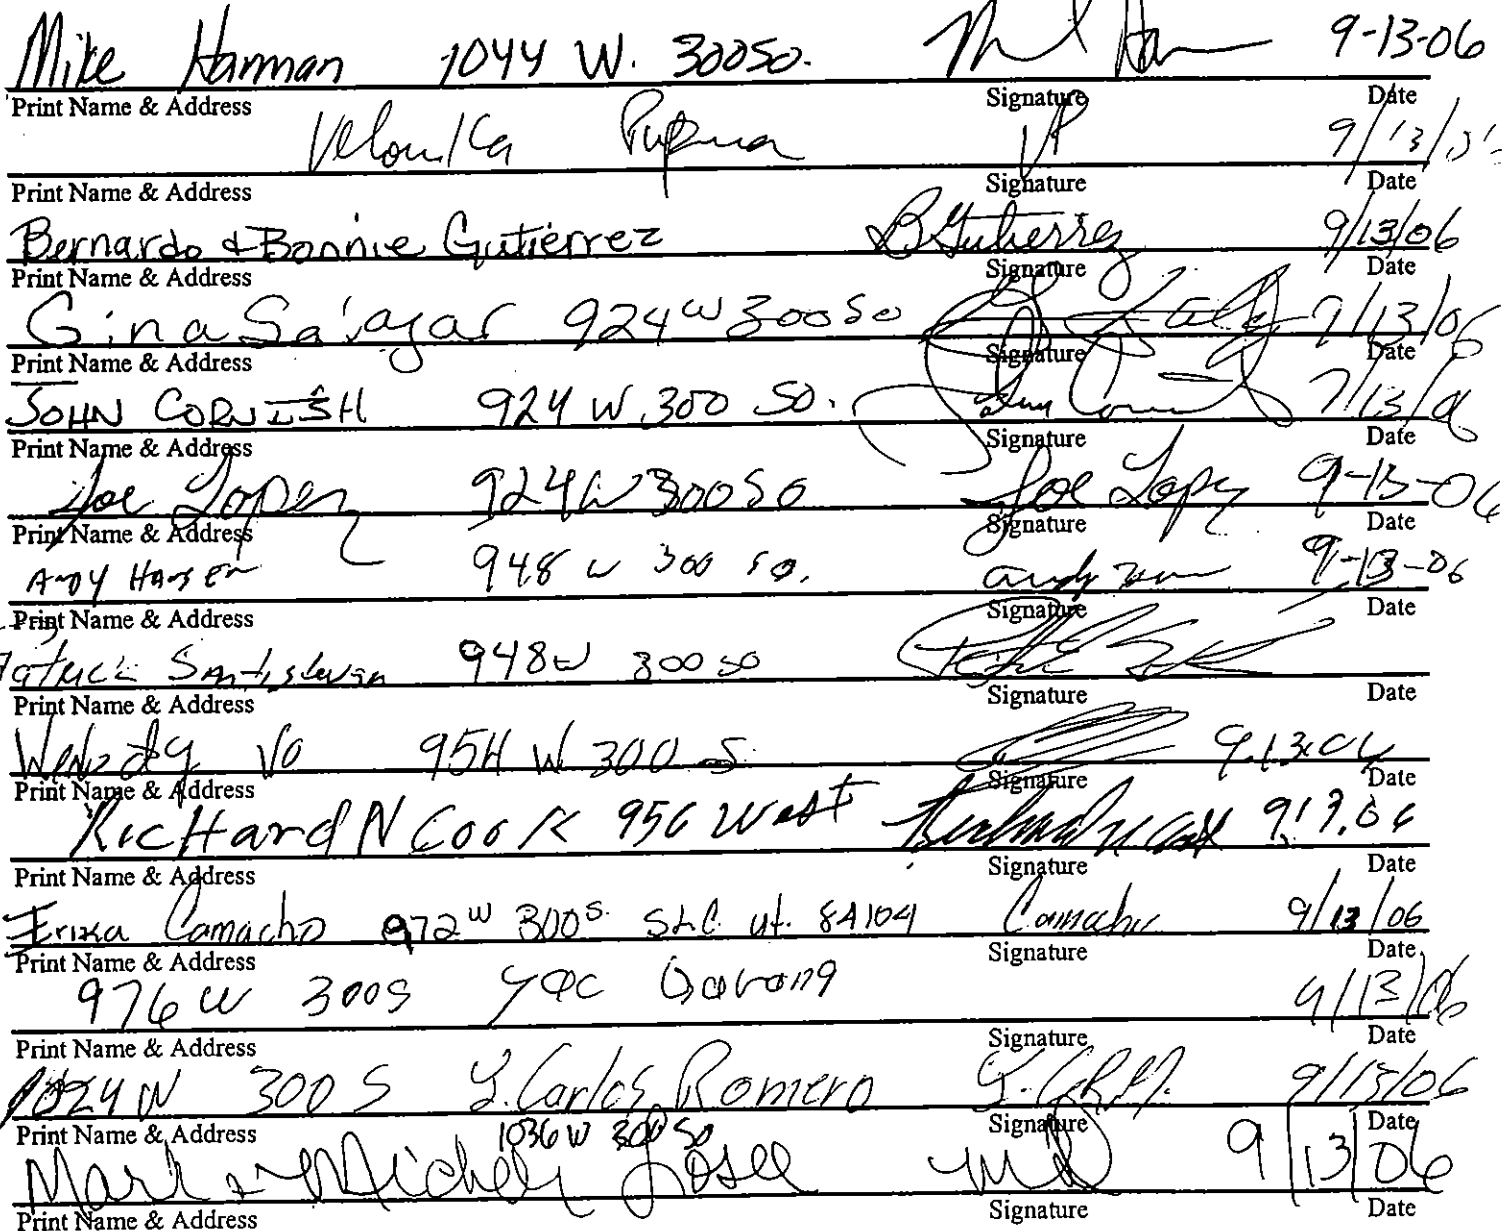 Mike Harman 1044 W. 300 So. 9-13-06
Print Name & Address Signature Date
9/13/
Print Name & Address Signature Date
Bernardo & Bonnie Gutierrez B Gutierrez 9/13/06
Print Name & Address Signature Date
Gina Salazar 924 W 300 So 9/13/06
Print Name & Address Signature Date
JOHN CORNISH 924 W. 300 SO. 9/13/06
Print Name & Address Signature Date
Joe Lopez 924 W 300 So Joe Lopez 9-13-06
Print Name & Address Signature Date
Andy Hansen 948 W 300 so. 9-13-06
Print Name & Address Signature Date
Patrick Santistevan 948 W 300 so
Print Name & Address Signature Date
Vo 954 W. 300 S 9.13.06
Print Name & Address Signature Date
Richard N Cook 956 West 9.13.06
Print Name & Address Signature Date
Erika Camacho 972 W 300 S. SLC ut. 84104 Camacho 9/13/06
Print Name & Address Signature Date
976 W 300 S 9/13/06
Print Name & Address Signature Date
1024 W 300 S J. Carlos Romero 9/13/06
Print Name & Address Signature Date
1036 W 300 So
Mark & Michele Losee 9/13/06
Print Name & Address Signature Date